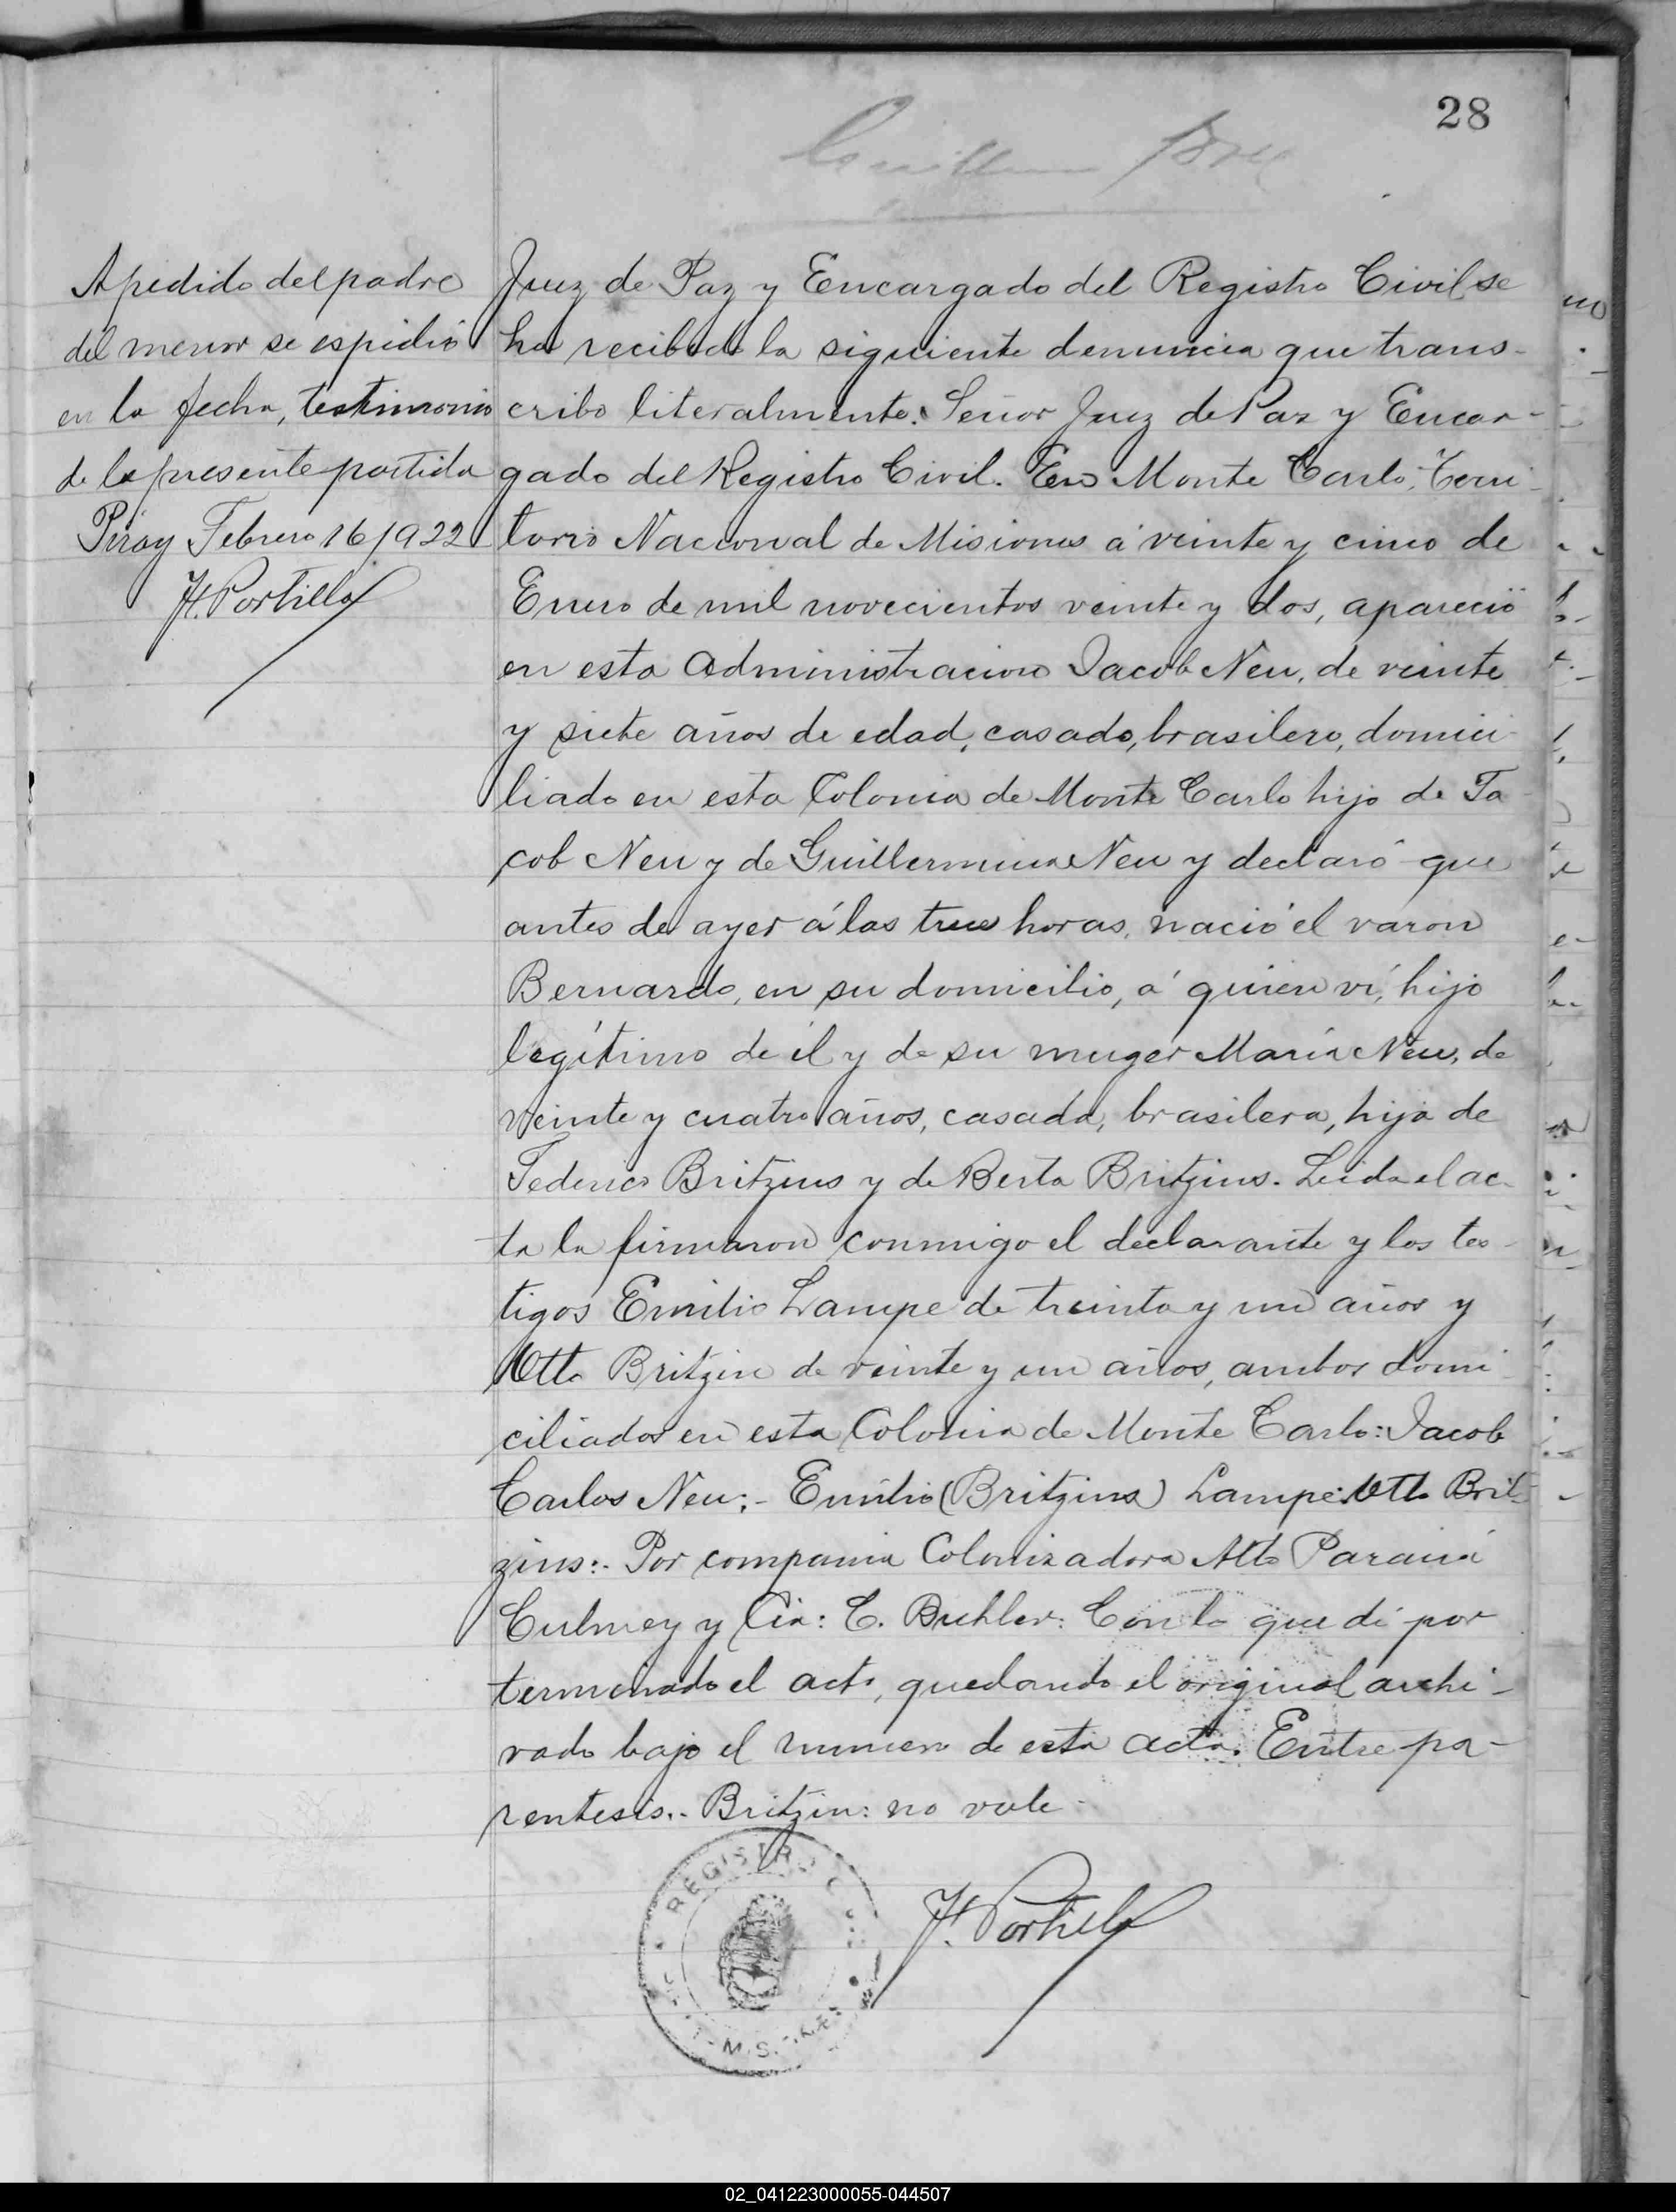 28
Apedido del padre
del menor se espidió
en la fecha, testimonio
de la presente partida
Piray Febrero 16/922
H. Portillo
Juez de Paz y Encargado del Registro Civil se
ha recibido la siguiente denuncia que trans-
cribo literalmente: Señor Juez de Paz y Encar-
gado del Registro Civil. En Monte Carlo, Terri-
torio Nacional de Misiones á veinte y cinco de
Enero de mil novecientos veinte y dos, apareció
en esta Administracion Jacob Neu, de veinte
y siete años de edad, casado, brasilero, domici-
liado en esta Colonia de Monte Carlo hijo de Ja-
cob Neu y de Guillermina Neu y declaró que
antes de ayer á las tres horas, nació el varon
Bernardo, en su domicilio, á quien ví, hijo
legítimo de él y de su muger María Neu, de
veinte y cuatro años, casada, brasilera, hija de
Federico Britzius y de Berta Britzius. Leida el ac-
ta la firmaron conmigo el declarante y los tes-
tigos Emilio Lampe de treinta y un años y
Otto Britzin de veinte y un años, ambos domi-
ciliados en esta Colonia de Monte Carlo: Jacob
Carlos Neu:- Emilio (Britzius) Lampe: Otto Brit-
zius:- Por compania Colonizadora Alto Paraná
Culmey y Cia: C. Buhler: Con lo que dí por
terminado el acto, quedando el original archi-
vado bajo el numero de esta acta. Entre pa-
rentesis.- Britzin: no vale-
REGISTRO
H. Portillo
02_041223000055-044507